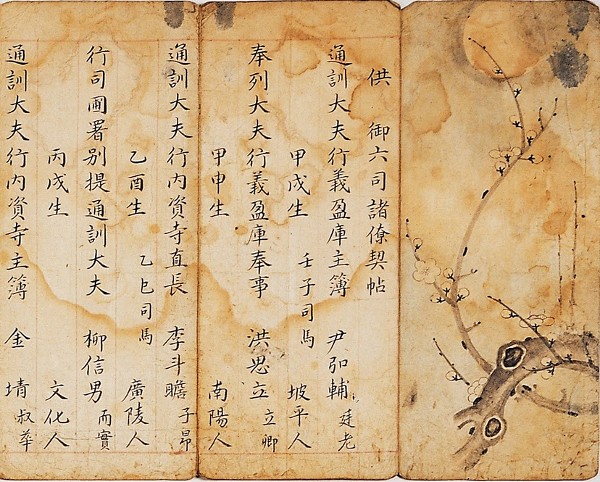 供 御六司諸僚契帖
通訓大夫行義盈庫主簿 尹弘輔 廷老
甲戌生 壬子司馬 坡平人
奉列大夫行義盈庫奉事 洪思立 立卿
甲申生 南陽人
通訓大夫行內資寺直長 李斗瞻 子昂
乙酉生 乙巳司馬 廣陵人
行司圃署別提通訓大夫 柳信男 而實
丙戌生 文化人
通訓大夫行內資寺主簿 金堉 叔華